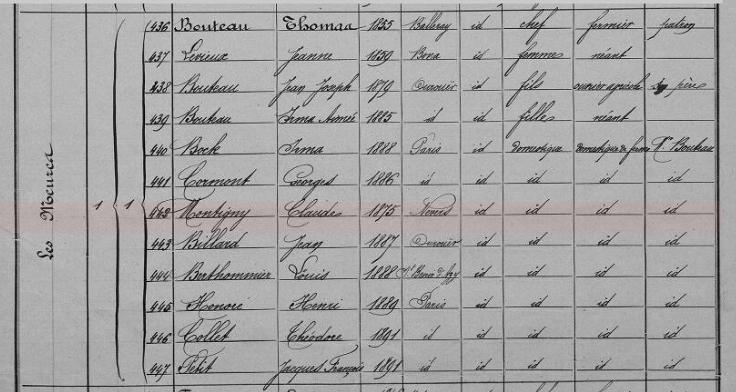 436 Bouteau Thomas 1855 Balleray id chef fermier patron
437 Levieux Jeanne 1859 Bona id femme néant
438 Bouteau Jean Joseph 1879 Ourouër id fils ouvrier agricole son père
439 Bouteau Irma Aimée 1885 id id fille néant
440 Bock Irma 1888 Paris id domestique domestique de ferme Bouteau
441 Cormont Georges 1886 id id id id id
Les 1 1 442 Montigny Claude 1875 Nevers id id id id
443 Billard Jean 1887 Ourouër id id id id
444 Berthommier Louis 1888 St Benin d'Azy id id id id
445 Honoré Henri 1889 Paris id id id id
446 Collet Théodore 1891 id id id id id
447 Petit Jacques François 1891 id id id id id